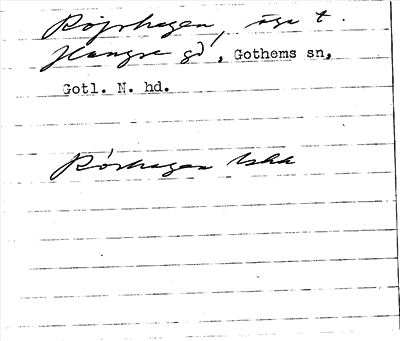 Röjrhagen, äga t.
Hangre gd, Gothems sn,
Gotl. N. hd.
Rörhagen Uskk